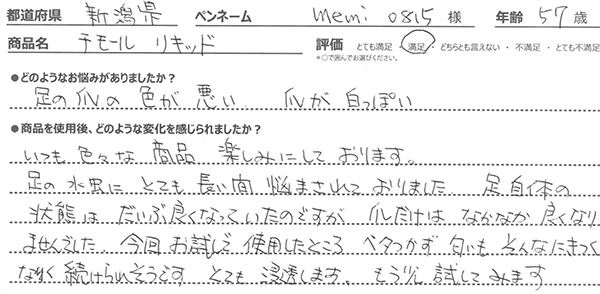 都道府県 新潟県 ペンネーム memi 0815 様 年齢 57 歳
商品名 チモール リキッド 評価 とても満足・満足・どちらとも言えない・不満足・とても不満足
*○で囲んでお選びください。
●どのようなお悩みがありましたか?
足の爪の色が悪い 爪が白っぽい
●商品を使用後、どのような変化を感じられましたか?
いつも色々な商品 楽しみにして おります。
足の水虫に とても長い間 悩まされて おりました 足自体の
状態は だいぶ良くなっていたのですが 爪だけは なかなか 良くなり
ませんでした。今回 お試しで 使用したところ ベタつかず 匂いも そんなにきつく
なく 続けられそうです とても 浸透します。もう少し 試してみます